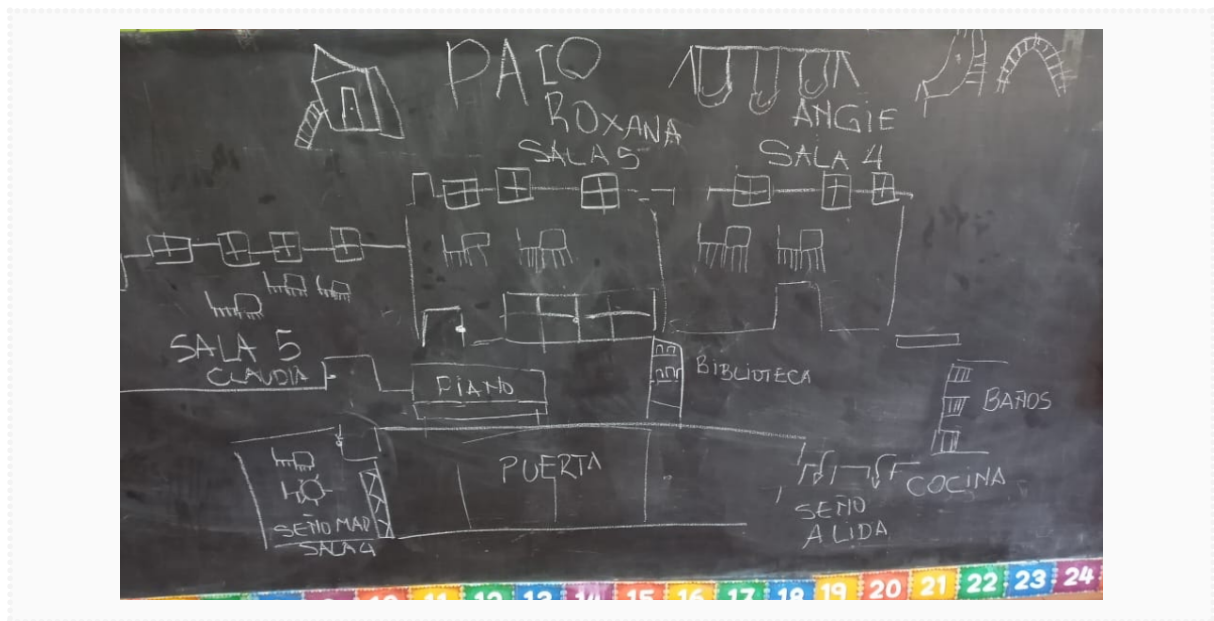 PAEO
ROXANA
SALA 5
ANGIE
SALA 4
SALA 5
CLAUDIA
PIANO
BIBLIOTECA
BAÑOS
PUERTA
COCINA
SEÑO
ALIDA
SEÑO MAD
SALA 4
11 12 13 14 15 16 17 18 19 20 21 22 23 24